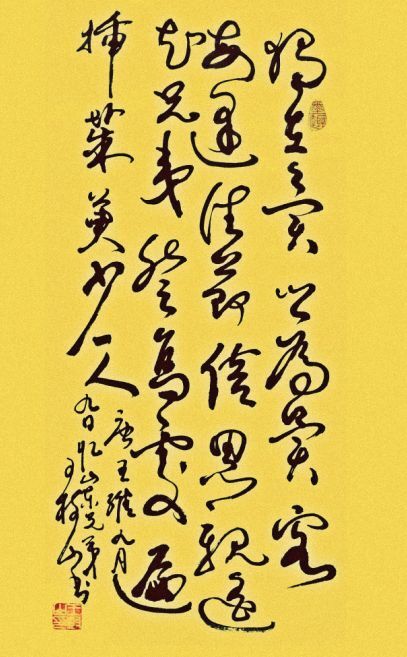 獨在異鄉為異客
每逢佳節倍思親遙
知兄弟登高處遍
插茱萸少一人
唐王維九月
九日憶山東兄弟
樹山书